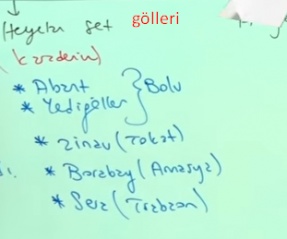 Heyelan set gölleri
(Karadeniz)
* Abant
* Yedigöller } Bolu
* Zinav (Tokat)
* Borabay (Amasya)
* Sera (Trabzon)